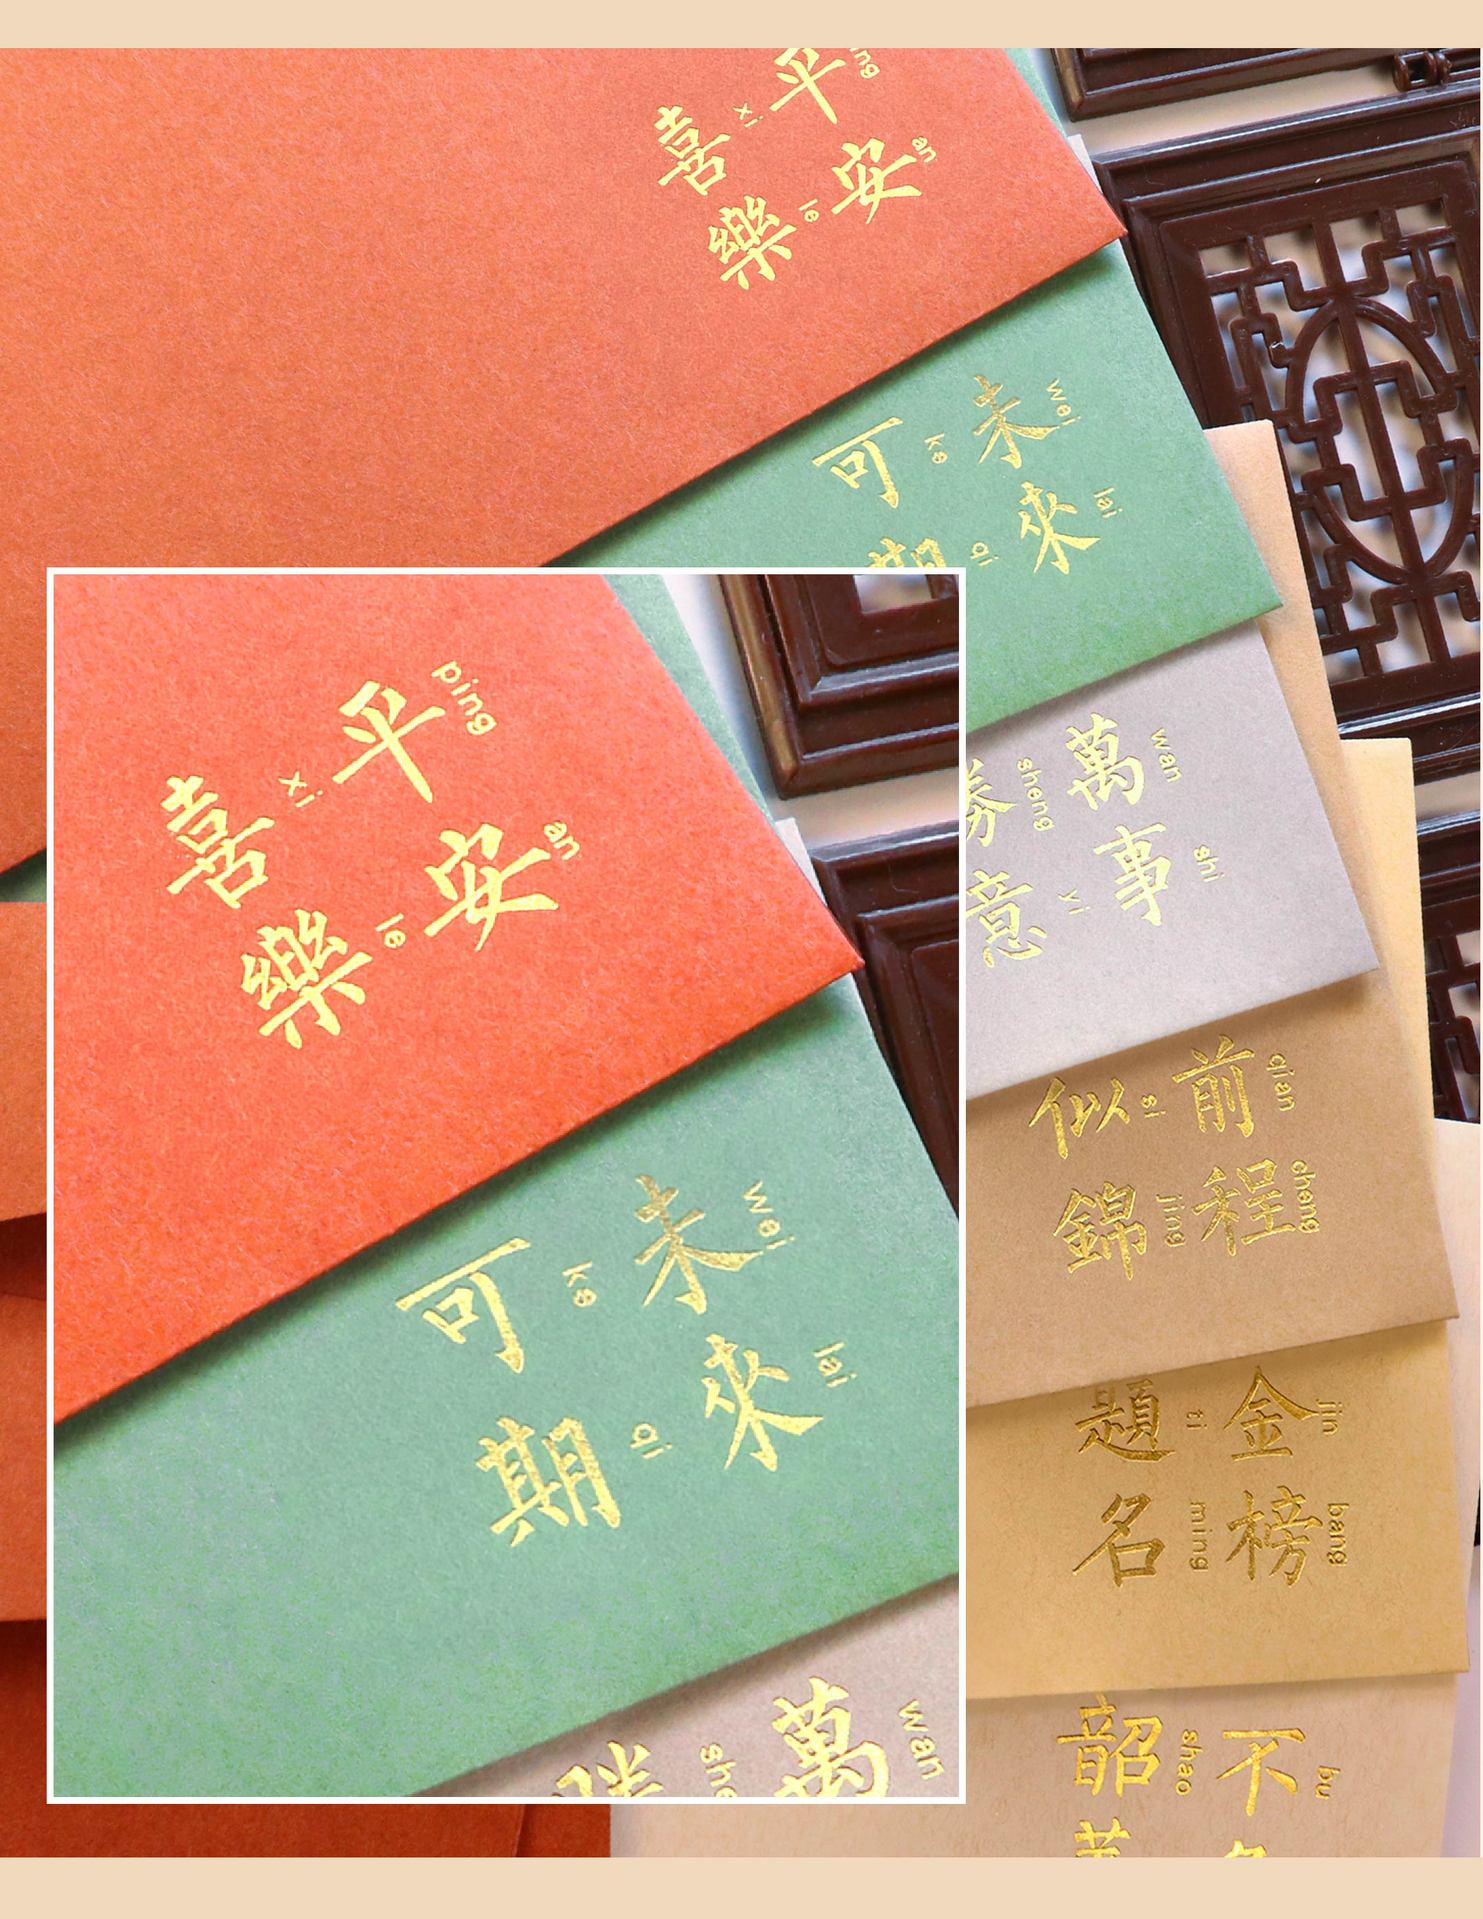 平安
an
喜樂
xi le
未來
wei lai
可期
ke qi
萬事
wan shi
勝意
sheng yi
前程
qian cheng
似錦
si jing
金榜
jin bang
題名
ti ming
不
bu
韶
shao
平安
ping an
喜樂
xi le
未來
wei lai
可期
ke qi
萬
wan